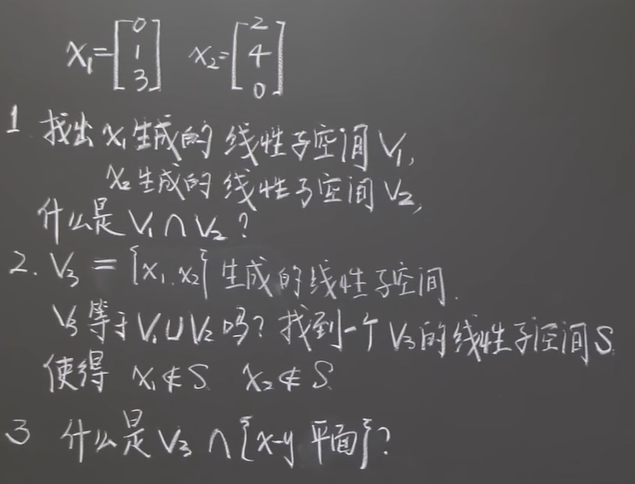 x₁=[0 1 3] x₂=[2 4 0]
1 找出x₁生成的线性子空间V₁,
x₂生成的线性子空间V₂,
什么是V₁∩V₂?
2. V₃={x₁,x₂}生成的线性子空间.
V₃等于V₁∪V₂吗?找到一个V₃的线性子空间S
使得 x₁∉S x₂∉S
3 什么是V₃∩{x-y平面}?